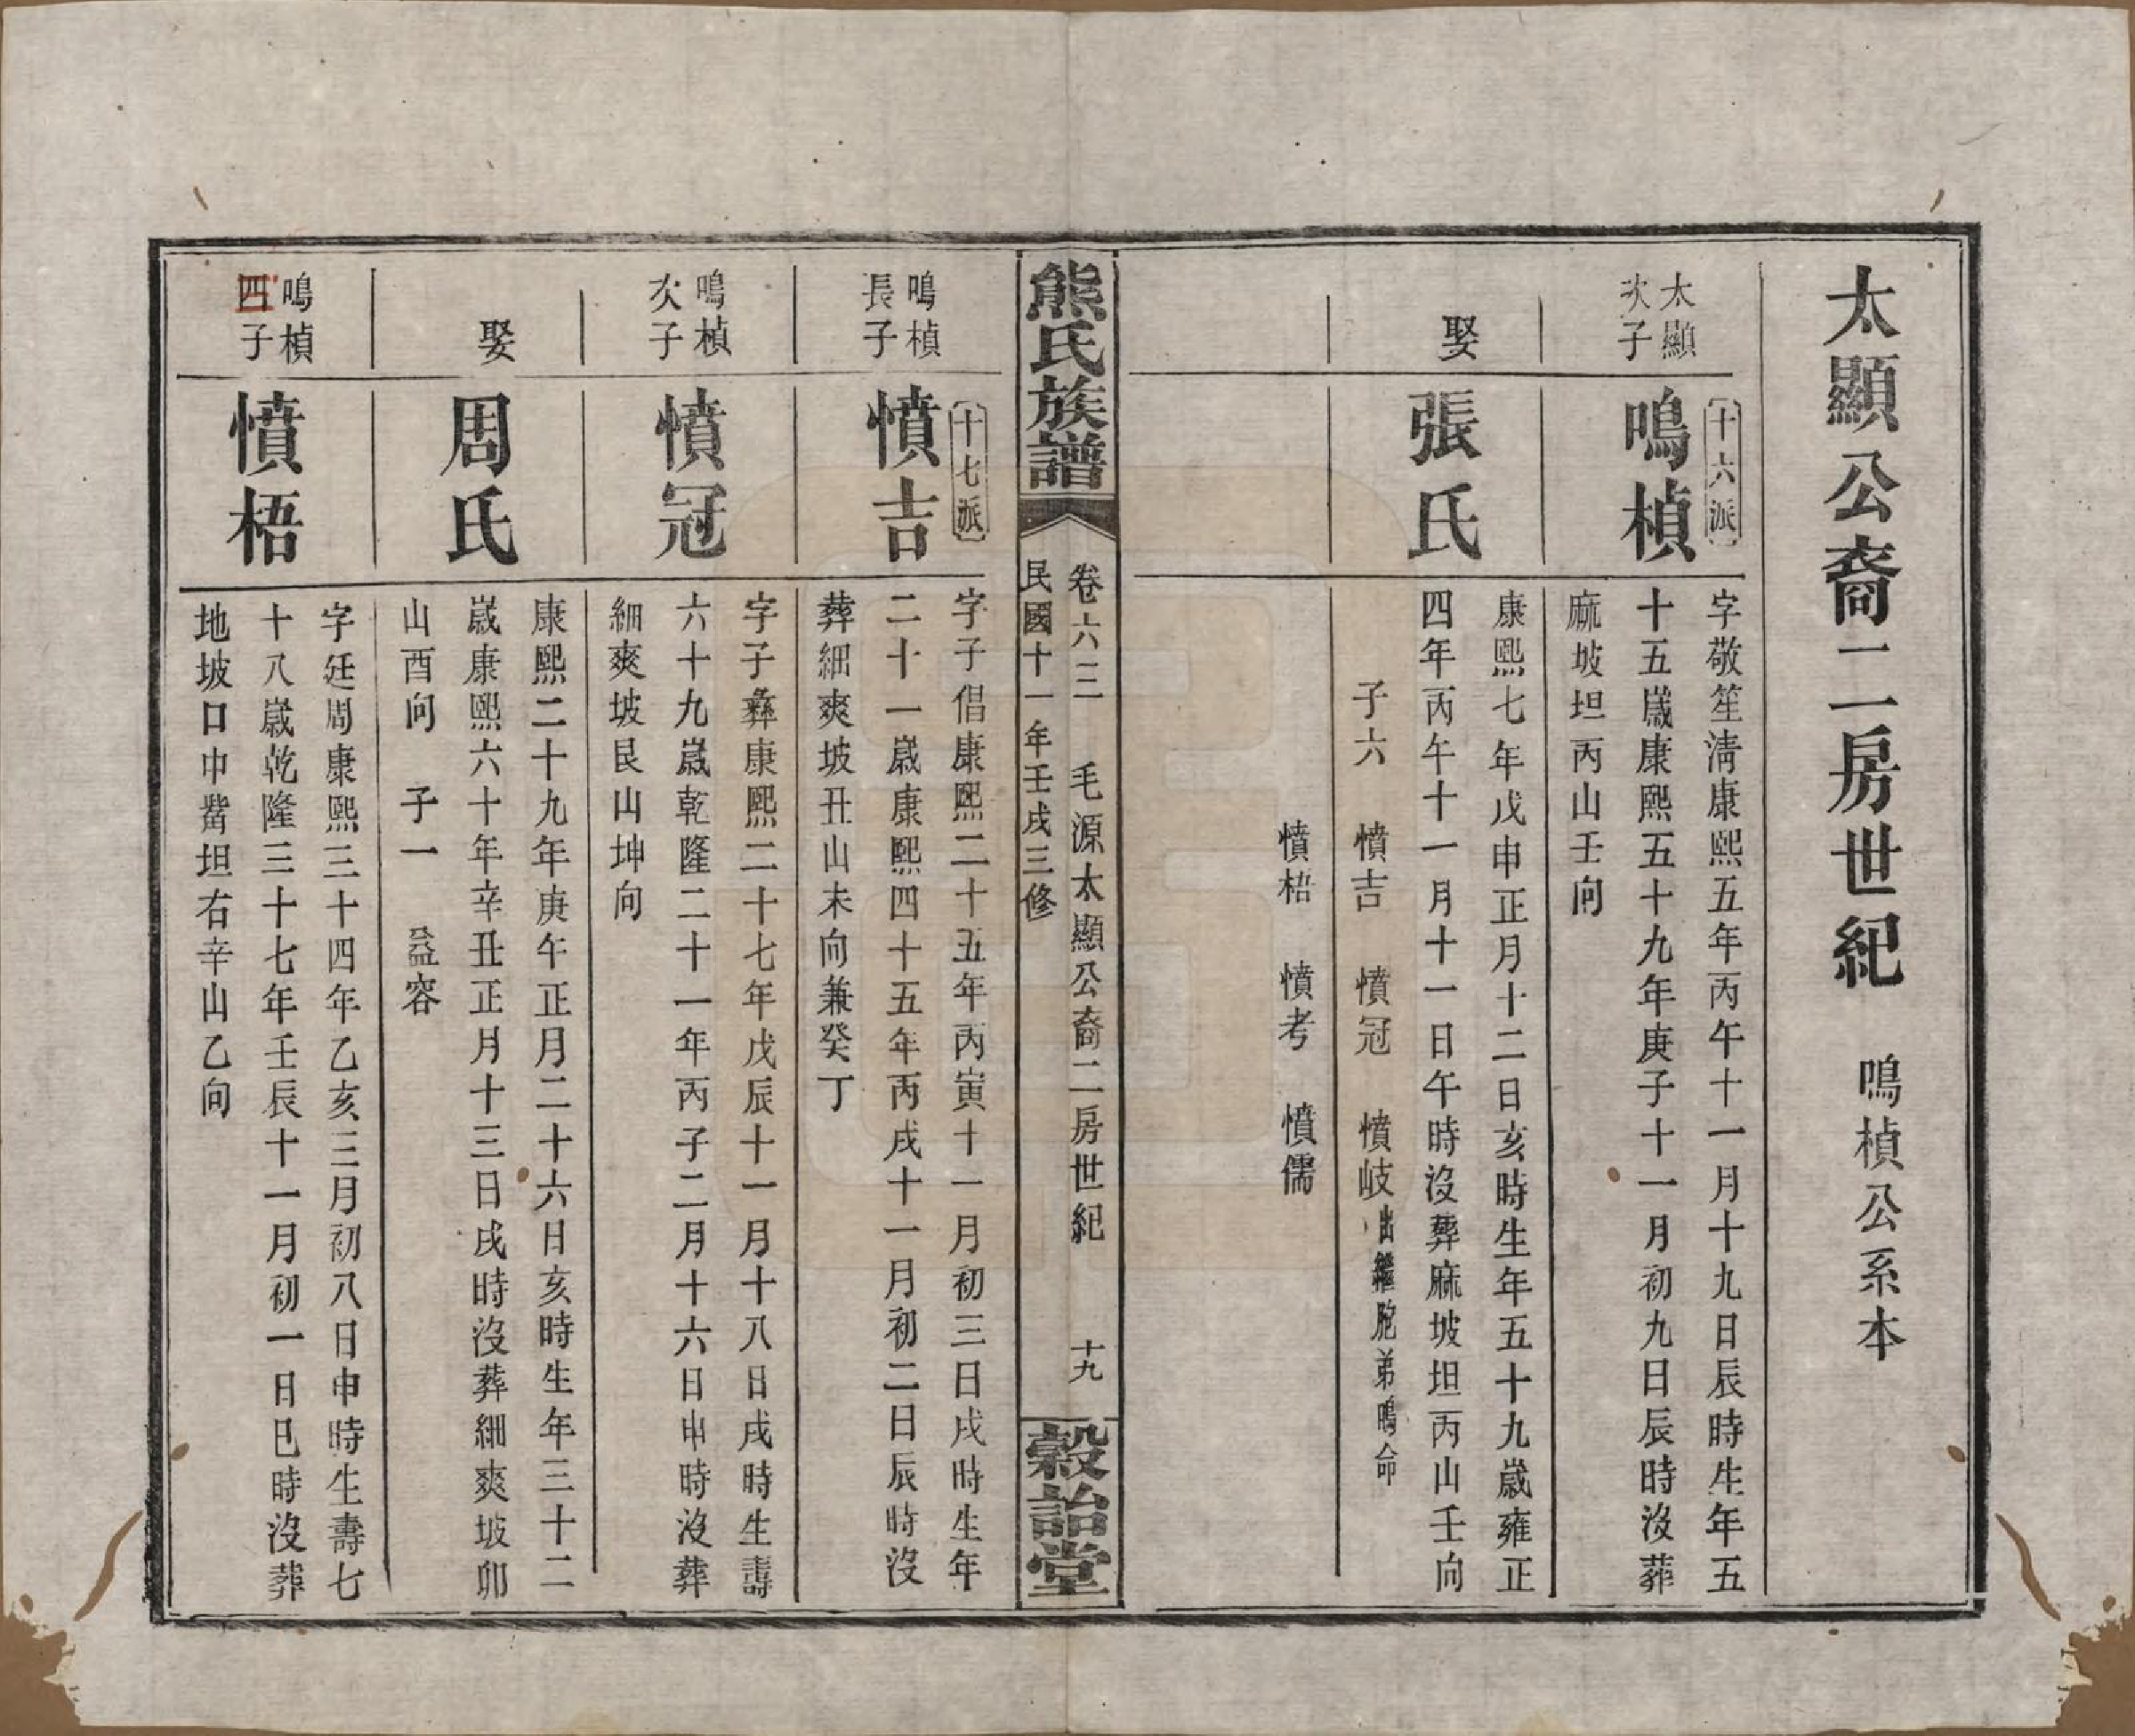 太顯公裔二房世紀 鳴楨公系本
太顯
次子
十六派
鳴楨
字敬笙淸康熙五年丙午十一月十九日辰時生年五
十五嵗康熙五十九年庚子十一月初九日辰時沒葬
麻坡坦丙山壬向
娶
張氏
康熙七年戊申正月十二日亥時生年五十九嵗雍正
四年丙午十一月十一日午時沒葬麻坡坦丙山壬向
子六 憤吉 憤冠 憤岐出繼胞弟鳴命
憤梧 憤考 憤儒
熊氏族譜
卷六三 毛源太顯公裔二房世紀 十九
民國十一年壬戌三修
穀詒堂
鳴楨
長子
十七派
憤吉
字子倡康熙二十五年丙寅十一月初三日戌時生年
二十一嵗康熙四十五年丙戌十一月初二日辰時沒
葬細爽坡丑山未向兼癸丁
鳴楨
次子
憤冠
字子彝康熙二十七年戊辰十一月十八日戌時生壽
六十九嵗乾隆二十一年丙子二月十六日申時沒葬
細爽坡艮山坤向
娶
周氏
康熙二十九年庚午正月二十六日亥時生年三十二
嵗康熙六十年辛丑正月十三日戌時沒葬細爽坡卯
山酉向 子一 益容
鳴楨
四子
憤梧
字廷周康熙三十四年乙亥三月初八日申時生壽七
十八嵗乾隆三十七年壬辰十一月初一日巳時沒葬
地坡口中凿坦右辛山乙向